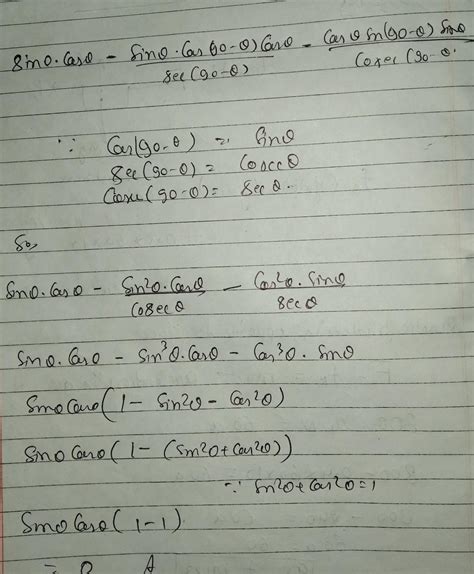 Sinθ.Cosθ - Sinθ.Cos(90-θ)Cosθ/Sec(90-θ) - Cosθ Sin(90-θ) Sinθ/Cosec(90-θ
∵ Cos(90-θ) = Sinθ
Sec(90-θ) = Cosecθ
Cosec(90-θ) = Secθ.
So,
Sinθ.Cosθ - Sin²θ.Cosθ/Cosecθ - Cos²θ.Sinθ/Secθ
Sinθ.Cosθ - Sin³θ.Cosθ - Cos³θ.Sinθ
SinθCosθ(1 - Sin²θ - Cos²θ)
SinθCosθ(1 - (Sin²θ+Cos²θ))
∵ Sin²θ+Cos²θ=1
SinθCosθ(1-1)